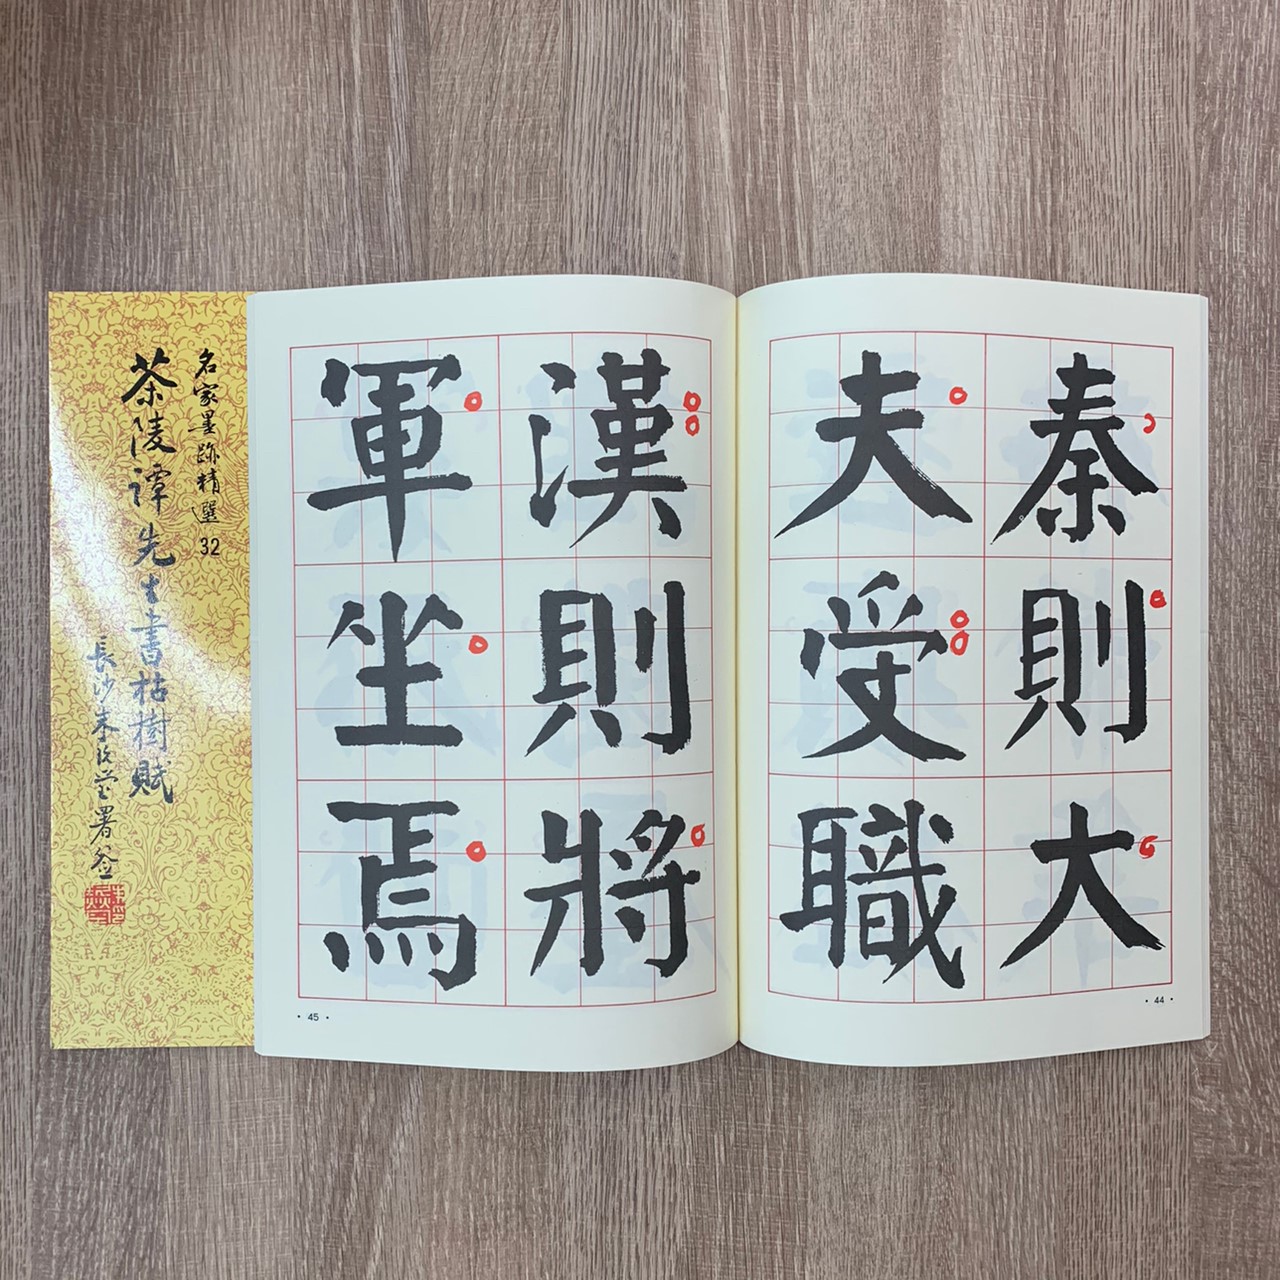 秦則大
夫受職
44
漢則將
軍坐焉
45
名家墨跡精選 32
茶陵譚先生書枯樹賦
長沙朱玖瑩署